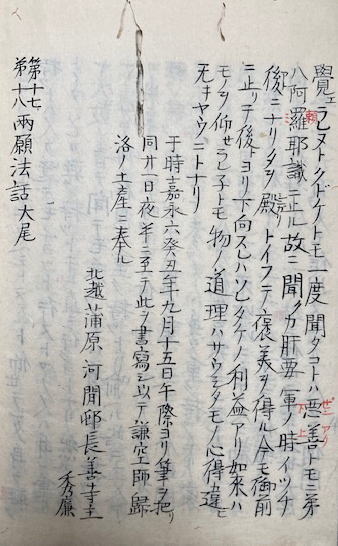 覺ェラレヌトクドケトモ一度聞タコトハ悪善トモニ第
八阿羅耶識ニ止ル故ニ聞クカ肝要軍ノ時イツチ
後ニナリタヲ殿リトイフテ褒美ヲ得ル今モ御前
ニ止リテ後ヨリ下向スルハソレタケノ利益アリ如来ハ
モノヲ仰セラレ子トモ物ノ道理ハサウシタモノ心得違モ
无キヤウニトナリ
于時嘉永六癸丑年九月十五日午際ヨリ筆ヲ把リ
同廿一日夜半ニ至テ此ヲ書寫シ以テ謙空師歸
洛ノ土産ニ奉ル
北越蒲原河間邨長善寺主
秀廉
第十七
第十八兩願法話大尾